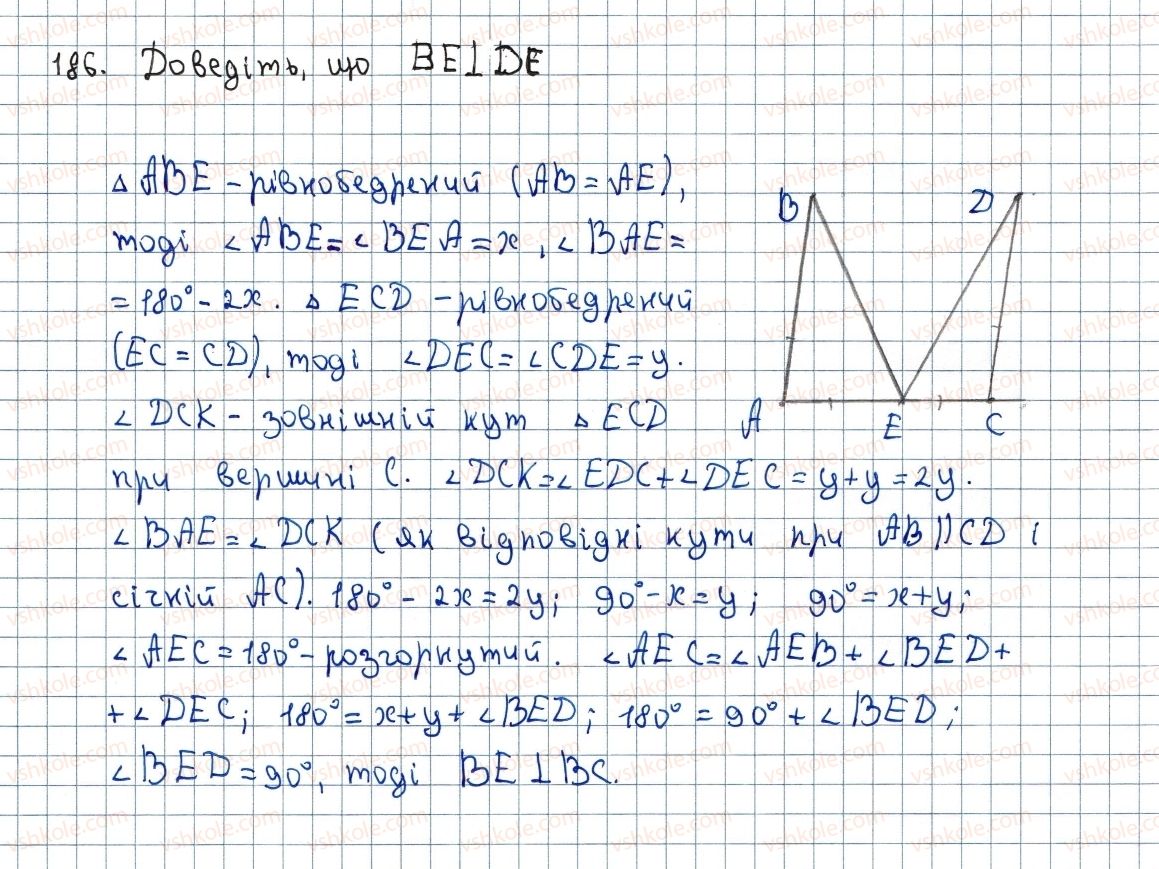 186. Доведіть, що BE⊥DE
△ ABE – рівнобедрений (AB = AE),
тоді ∠ ABE = ∠ BEA = x, ∠ BAE =
= 180° – 2x. △ ECD – рівнобедрений
(EC = CD), тоді ∠DEC = ∠CDE = y.
∠ DCK – зовнішній кут △ ECD
при вершині C. ∠DCK = ∠EDC + ∠DEC = y + y = 2y.
∠ BAE = ∠ DCK (як відповідні кути при AB || CD і
січній AC). 180° – 2x = 2y; 90° – x = y; 90° = x + y;
∠ AEC = 180° – розгорнутий. ∠AEC = ∠AEB + ∠BED +
+ ∠DEC; 180° = x + y + ∠BED; 180° = 90° + ∠BED;
∠BED = 90°, тоді BE⊥BC.
B D
A E C
vshkole.com